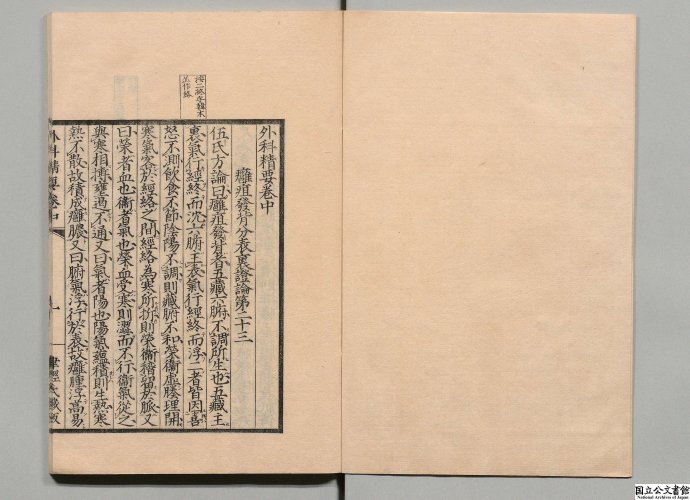 按二終字韓本
並作絡
外科精要卷中
癰疽發背分表裏證論第二十三
伍氏方論曰癰疽發背者五藏六腑不調所生也五藏主
裏氣行經終而沈六腑主表氣行經終而浮二者皆因喜
怒不測飲食不節陰陽不調則藏腑不和榮衛虛腠理開
寒氣客於經絡之間經絡為寒所折則榮衛稽留於脈又
曰榮者血也衞者氣也榮血受寒則澀而不行衞氣從之
與寒相搏壅遏不通又曰氣者陽也陽氣蘊積則生熱寒
熱不散故積成癰膿又曰腑氣浮行於表故癰腫浮高易
外科精要卷中
国立公文書館
National Archives of Japan